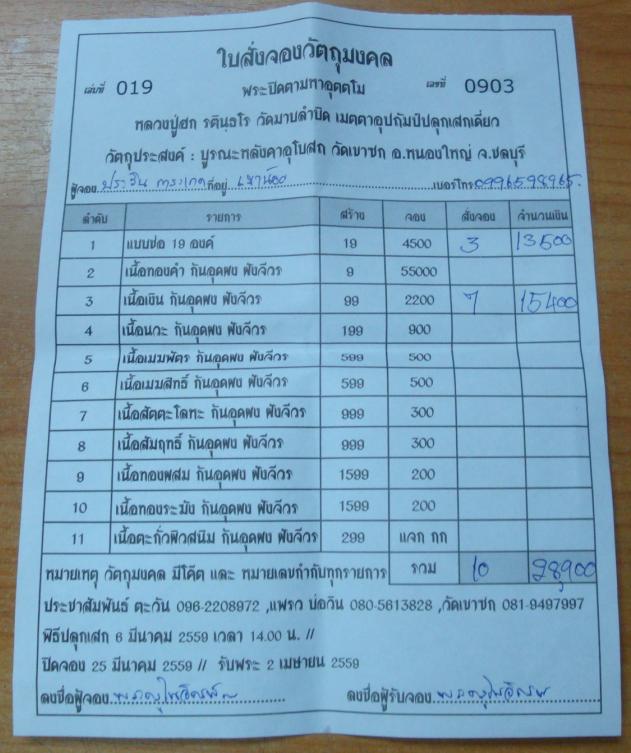 ใบสั่งจองวัตถุมงคล
เล่มที่ 019 พระปิดตามหาอุตตโม เลขที่ 0903
หลวงปู่ฮก รตินฺธโร วัดมาบลำบิด เมตตาอุปถัมป์ปลุกเสกเดี่ยว
วัตถุประสงค์ : บูรณะหลังคาอุโบสถ วัดเขาซก อ.หนองใหญ่ จ.ชลบุรี
ผู้จอง ที่อยู่ เบอร์โทร 0996598965.
ลำดับ รายการ สร้าง จอง สั่งจอง จำนวนเงิน
1 แบบช่อ 19 องค์ 19 4500 3 13500
2 เนื้อทองคำ ก้นอุดผง ฝังจีวร 9 55000
3 เนื้อเงิน ก้นอุดผง ฝังจีวร 99 2200 7 15400
4 เนื้อนวะ ก้นอุดผง ฝังจีวร 199 900
5 เนื้อเมฆพัตร ก้นอุดผง ฝังจีวร 599 500
6 เนื้อเมฆสิทธิ์ ก้นอุดผง ฝังจีวร 599 500
7 เนื้อสัตตะโลหะ ก้นอุดผง ฝังจีวร 999 300
8 เนื้อสัมฤทธิ์ ก้นอุดผง ฝังจีวร 999 300
9 เนื้อทองผสม ก้นอุดผง ฝังจีวร 1599 200
10 เนื้อทองระฆัง ก้นอุดผง ฝังจีวร 1599 200
11 เนื้อตะกั่วผิวสนิม ก้นอุดผง ฝังจีวร 299 แจก กก
หมายเหตุ วัตถุมงคล มีโค๊ต และ หมายเลขกำกับทุกรายการ รวม 10 28,900
ประชาสัมพันธ์ ตะวัน 096-2208972 ,แพรว บ่อวิน 080-5613828 ,วัดเขาซก 081-9497997
พิธีปลุกเสก 6 มีนาคม 2559 เวลา 14.00 น. //
ปิดจอง 25 มีนาคม 2559 // รับพระ 2 เมษายน 2559
ลงชื่อผู้จอง ลงชื่อผู้รับจอง